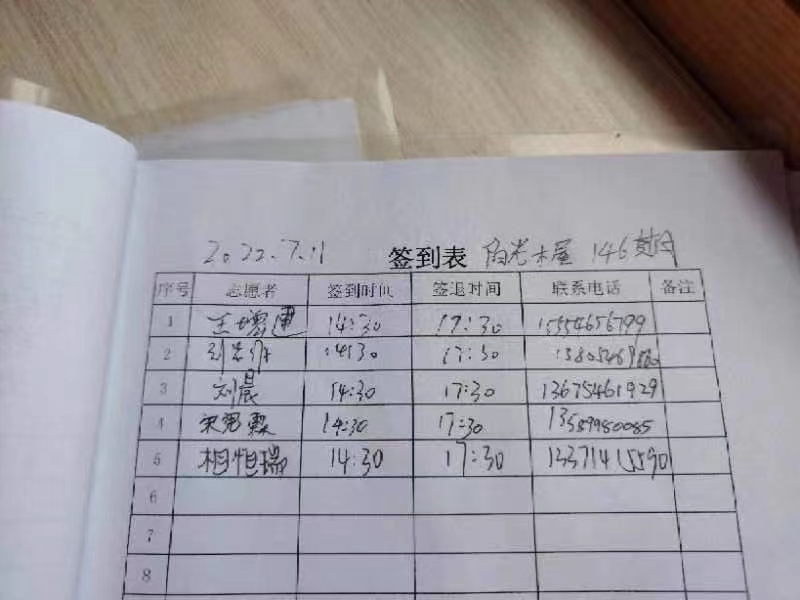 2022.7.11 签到表 146
序号 志愿者 签到时间 签退时间 联系电话 备注
1 14:30 17:30 15554656799
2 14:30 17:30
3 刘晨 14:30 17:30 13675461929
4 14:30 17:30 13589980085
5 相恒瑞 14:30 17:30 13371415590
6
7
8